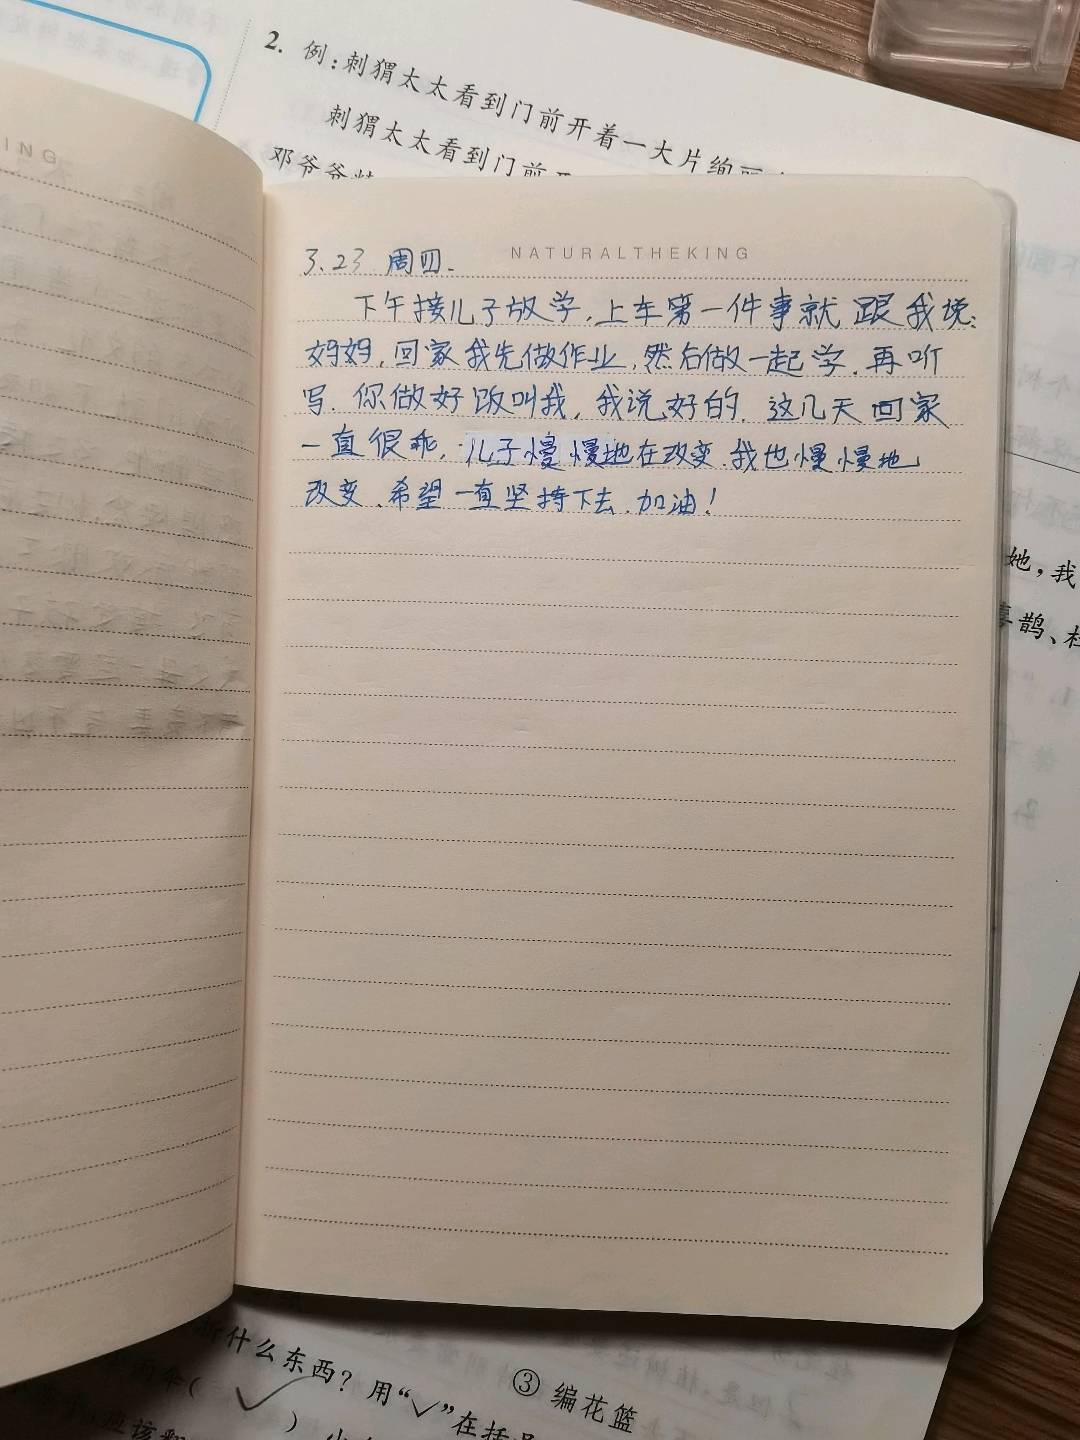 2. 例：刺猬太太看到门前开着一大片绚
刺猬太太看到门前
邓爷爷
KING
NATURALTHEKING
3.23 周四.
下午接儿子放学,上车第一件事就跟我说:
妈妈,回家我先做作业,然后做一起学.再听
写.你做好饭叫我,我说好的.这几天回家
一直很乖,儿子慢慢地在改变.我也慢慢地
改变.希望一直坚持下去.加油!
她，我
喜鹊、杜
什么东西？用“✓”在括
③ 编花篮